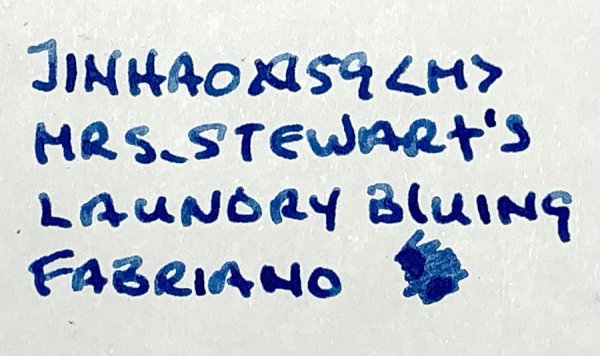 JINHAO X159 <M>
MRS. STEWART'S
LAUNDRY BLUING
FABRIANO